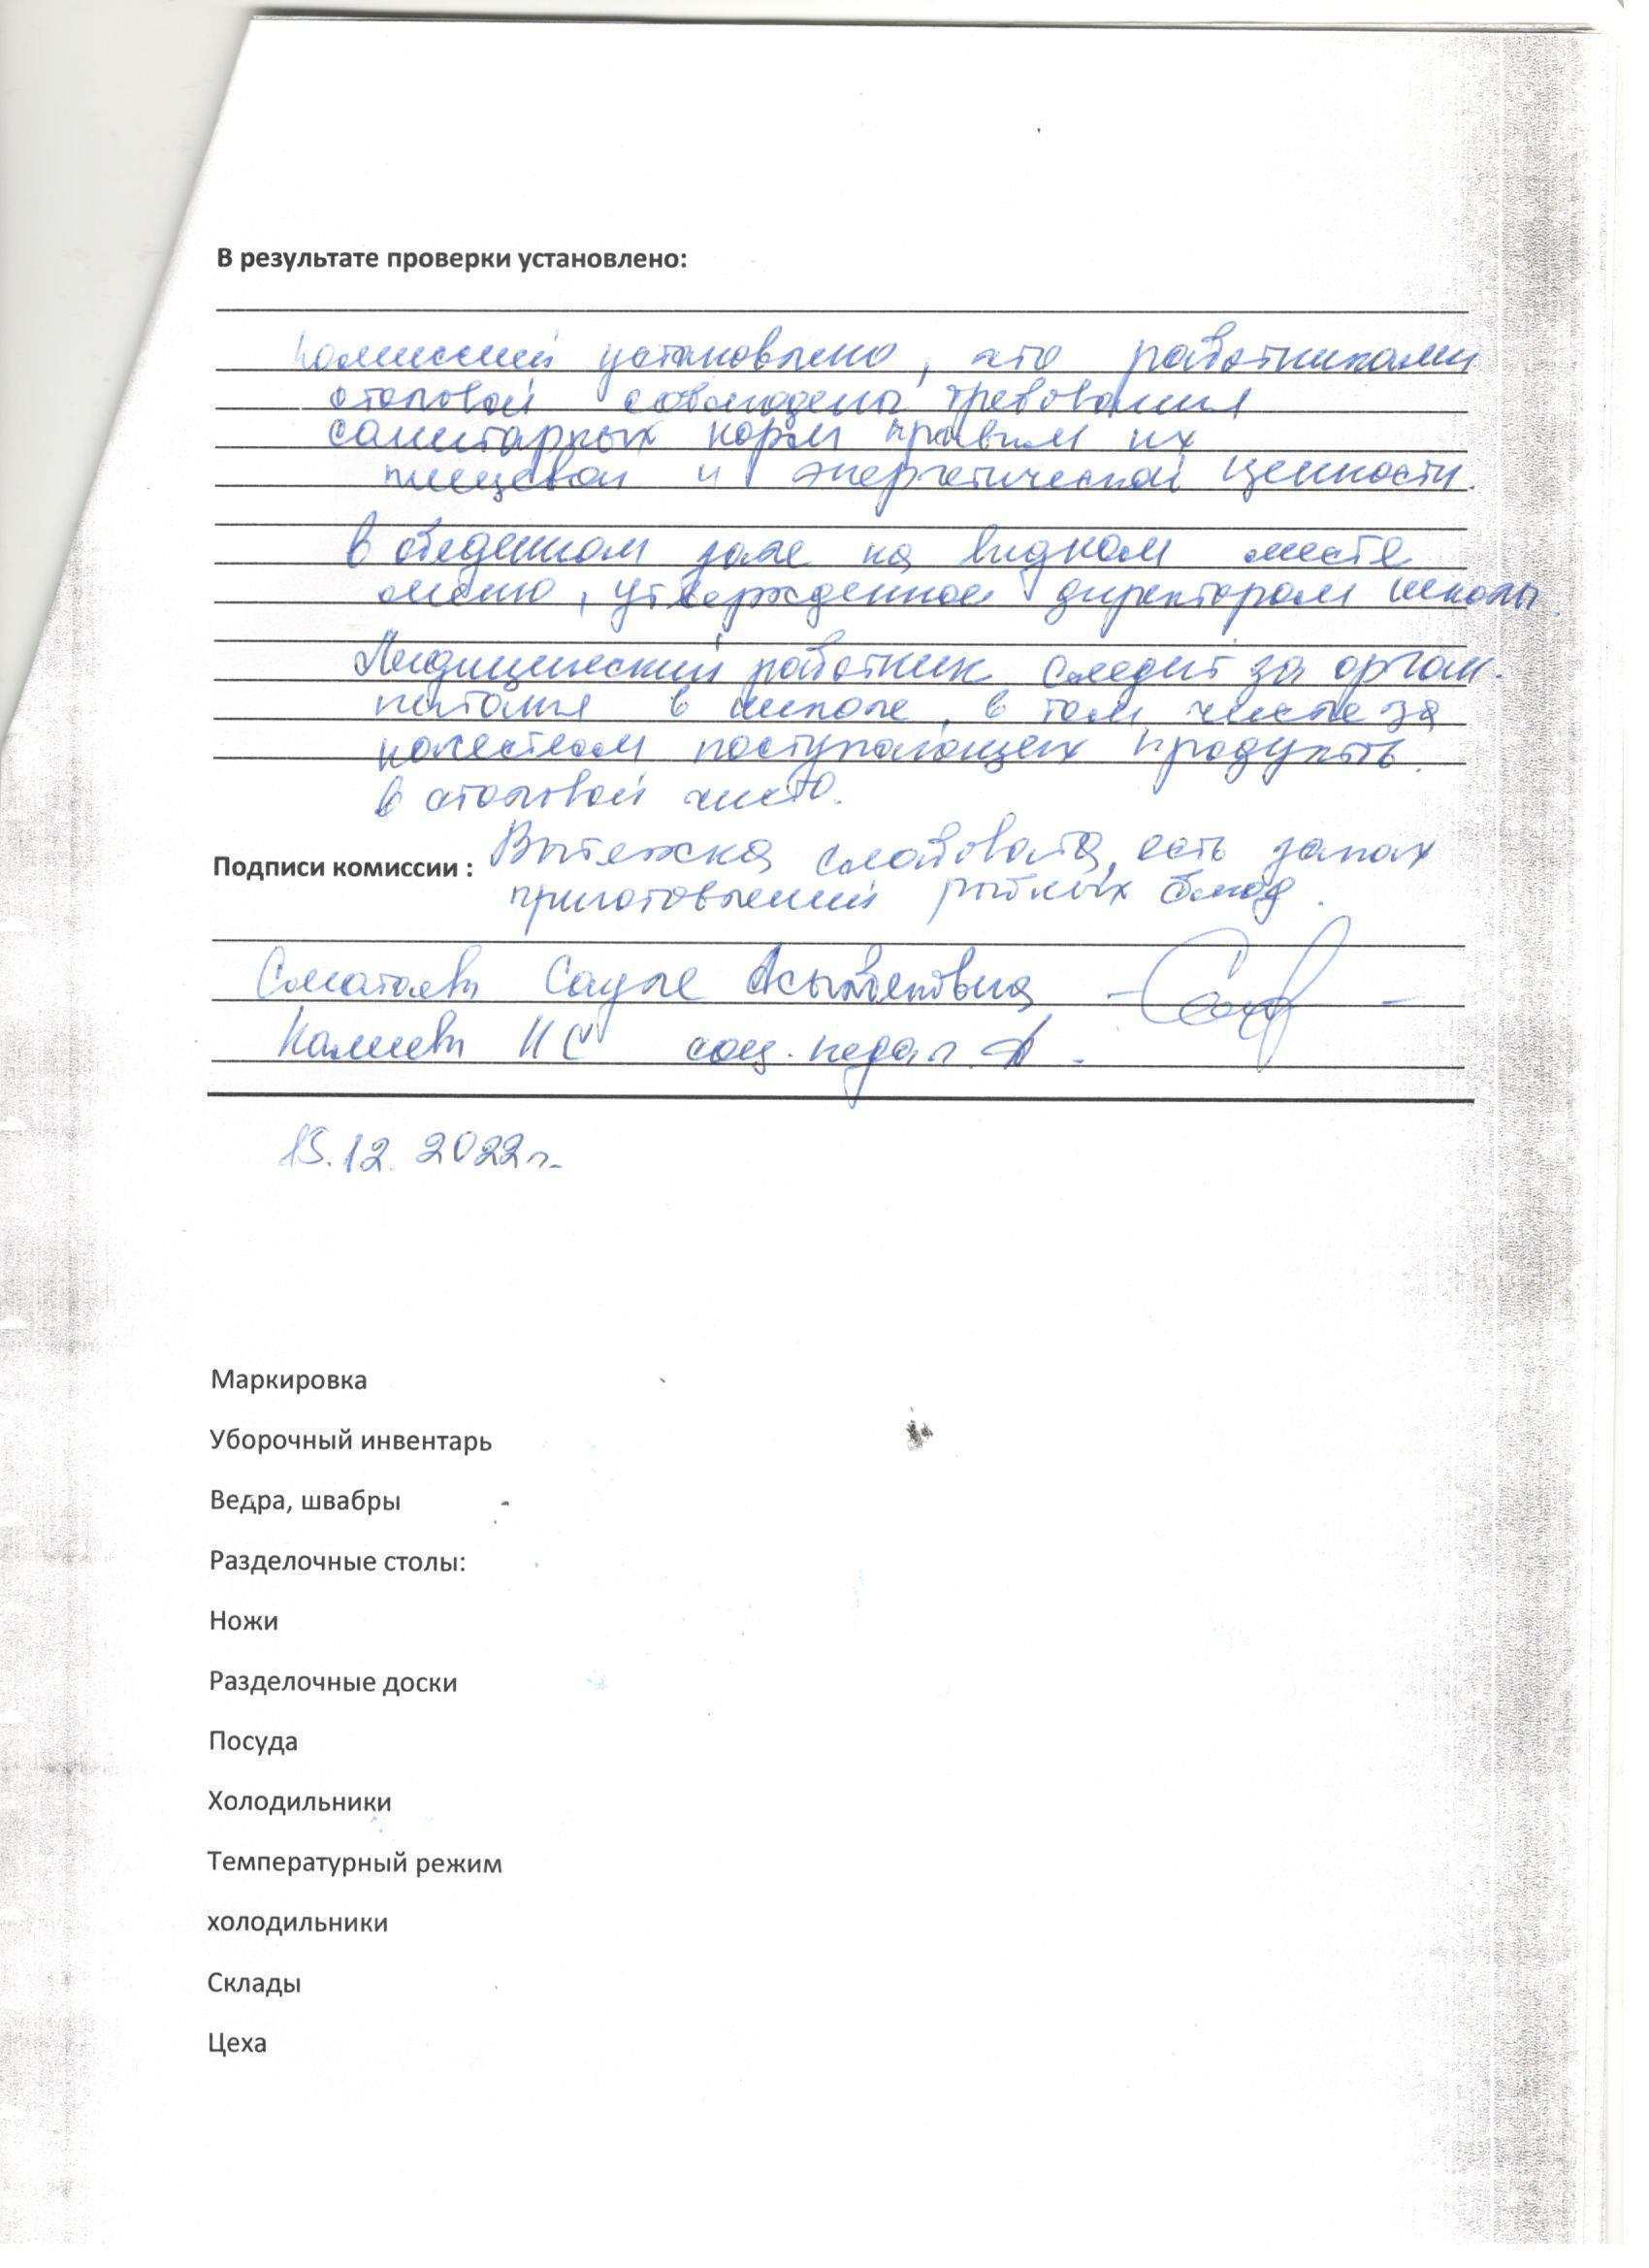 В результате проверки установлено:
Комиссией установлено, что работниками
столовой соблюдены требования
санитарных норм правил их
пищевой и энергетической ценности.
в обеденном зале на видном месте
меню, утвержденное директором школы.
Медицинский работник следит за орган.
питания в школе, в том числе за
качеством поступающих продуктв.
в столовой чисто.
Подписи комиссии : Вытяжка слабовата, есть запах
приготовлений рыбных блюд.
Сауле
НС соц. педаг.
15.12.2022г.
Маркировка
Уборочный инвентарь
Ведра, швабры
Разделочные столы:
Ножи
Разделочные доски
Посуда
Холодильники
Температурный режим
холодильники
Склады
Цеха